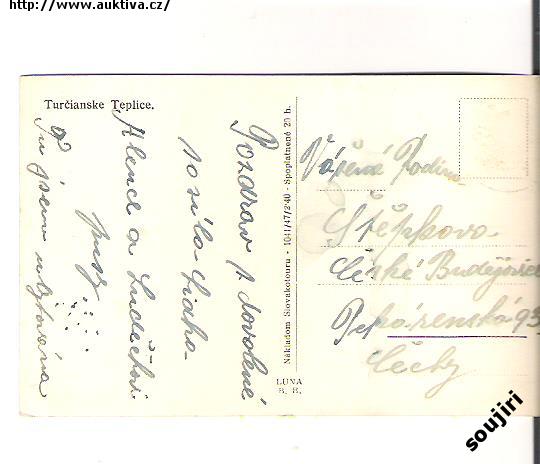 http://www.auktiva.cz/
Turčianske Teplice.
Pozdrav z dovolené
Alence a Luďečkovi
pusy
jsem
Nákladom Slovakotouru. - 1041/47/2140 - Spoplatnené 20 h.
LUNA
B. B.
Vážená Rodina
Štěpkova
České Budějovice
Pekárenská 93
Čechy
soujiri